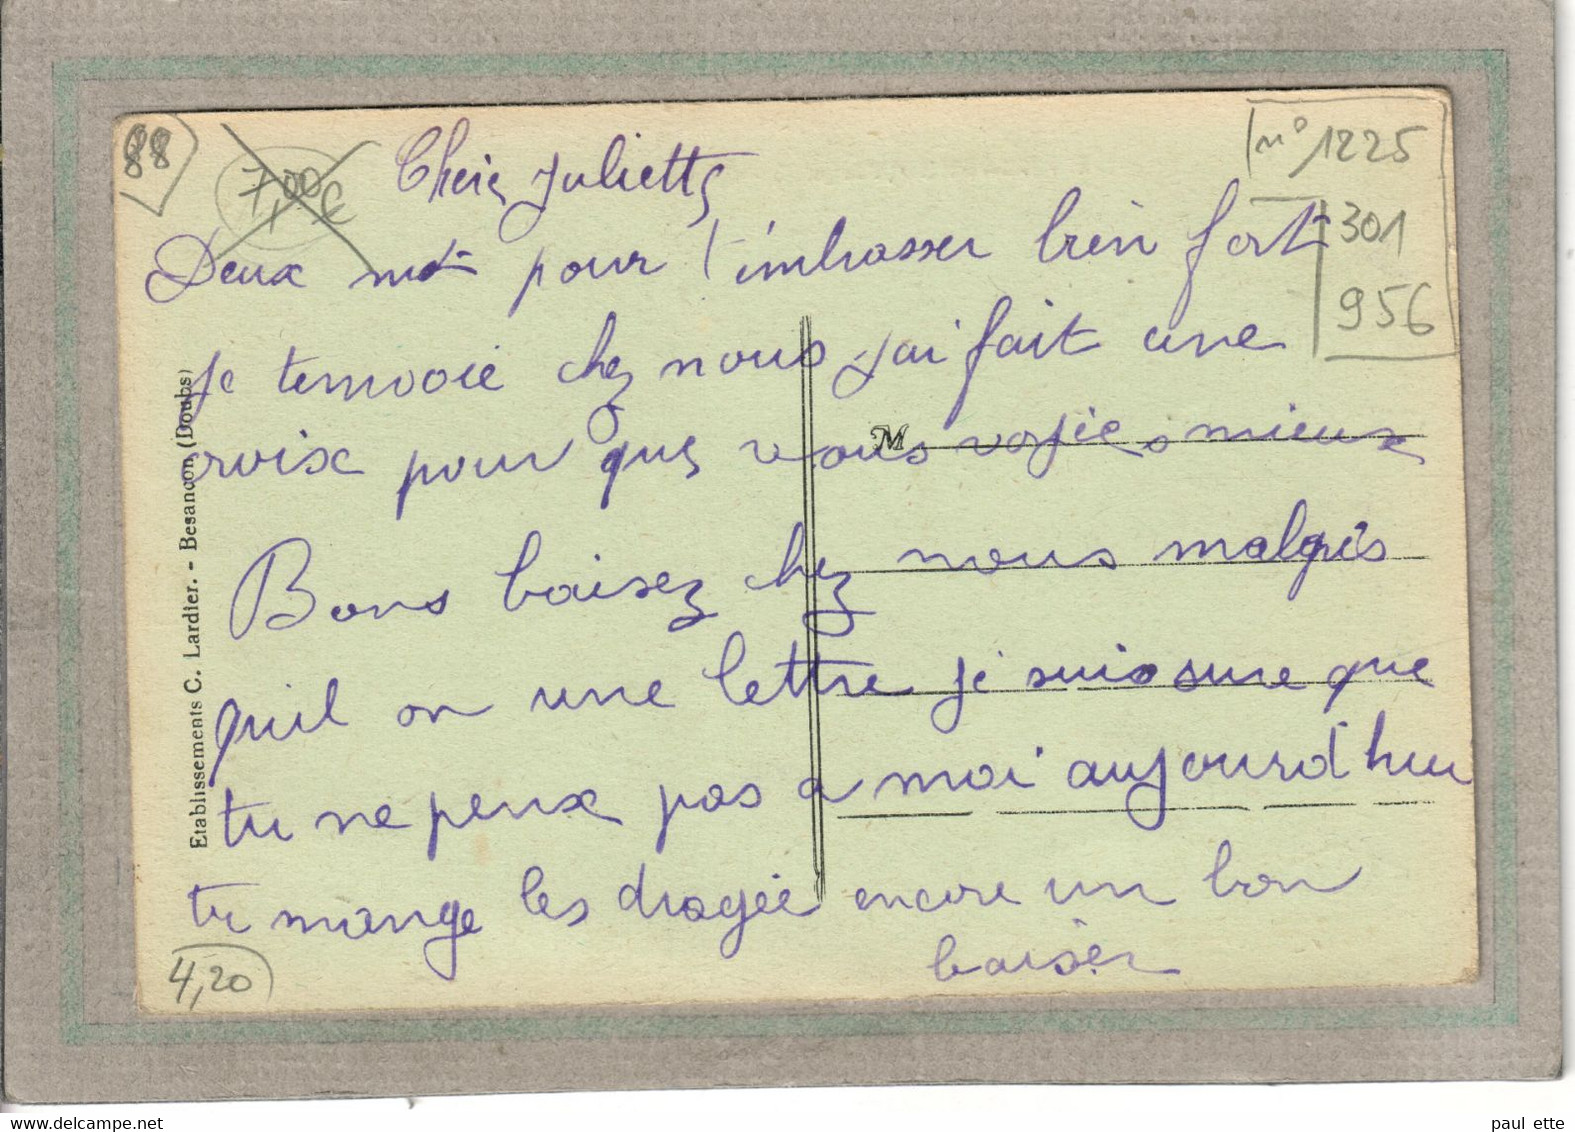 88
7,00€
n° 1225
301
956
Cherie Juliette
Deux mot pour t'embrasser bien fort
Je tenvoie chez nous j'ai fait une
croix pour que vous voyiez mieux
M
Bons baisez chez nous malgrés
quil on une lettre je suis sure que
tu ne peux pas a moi aujourd'hui
tu mange les dragée encore un bon
baiser
4,20
Etablissements C. Lardier. - Besançon (Doubs)
paul ette